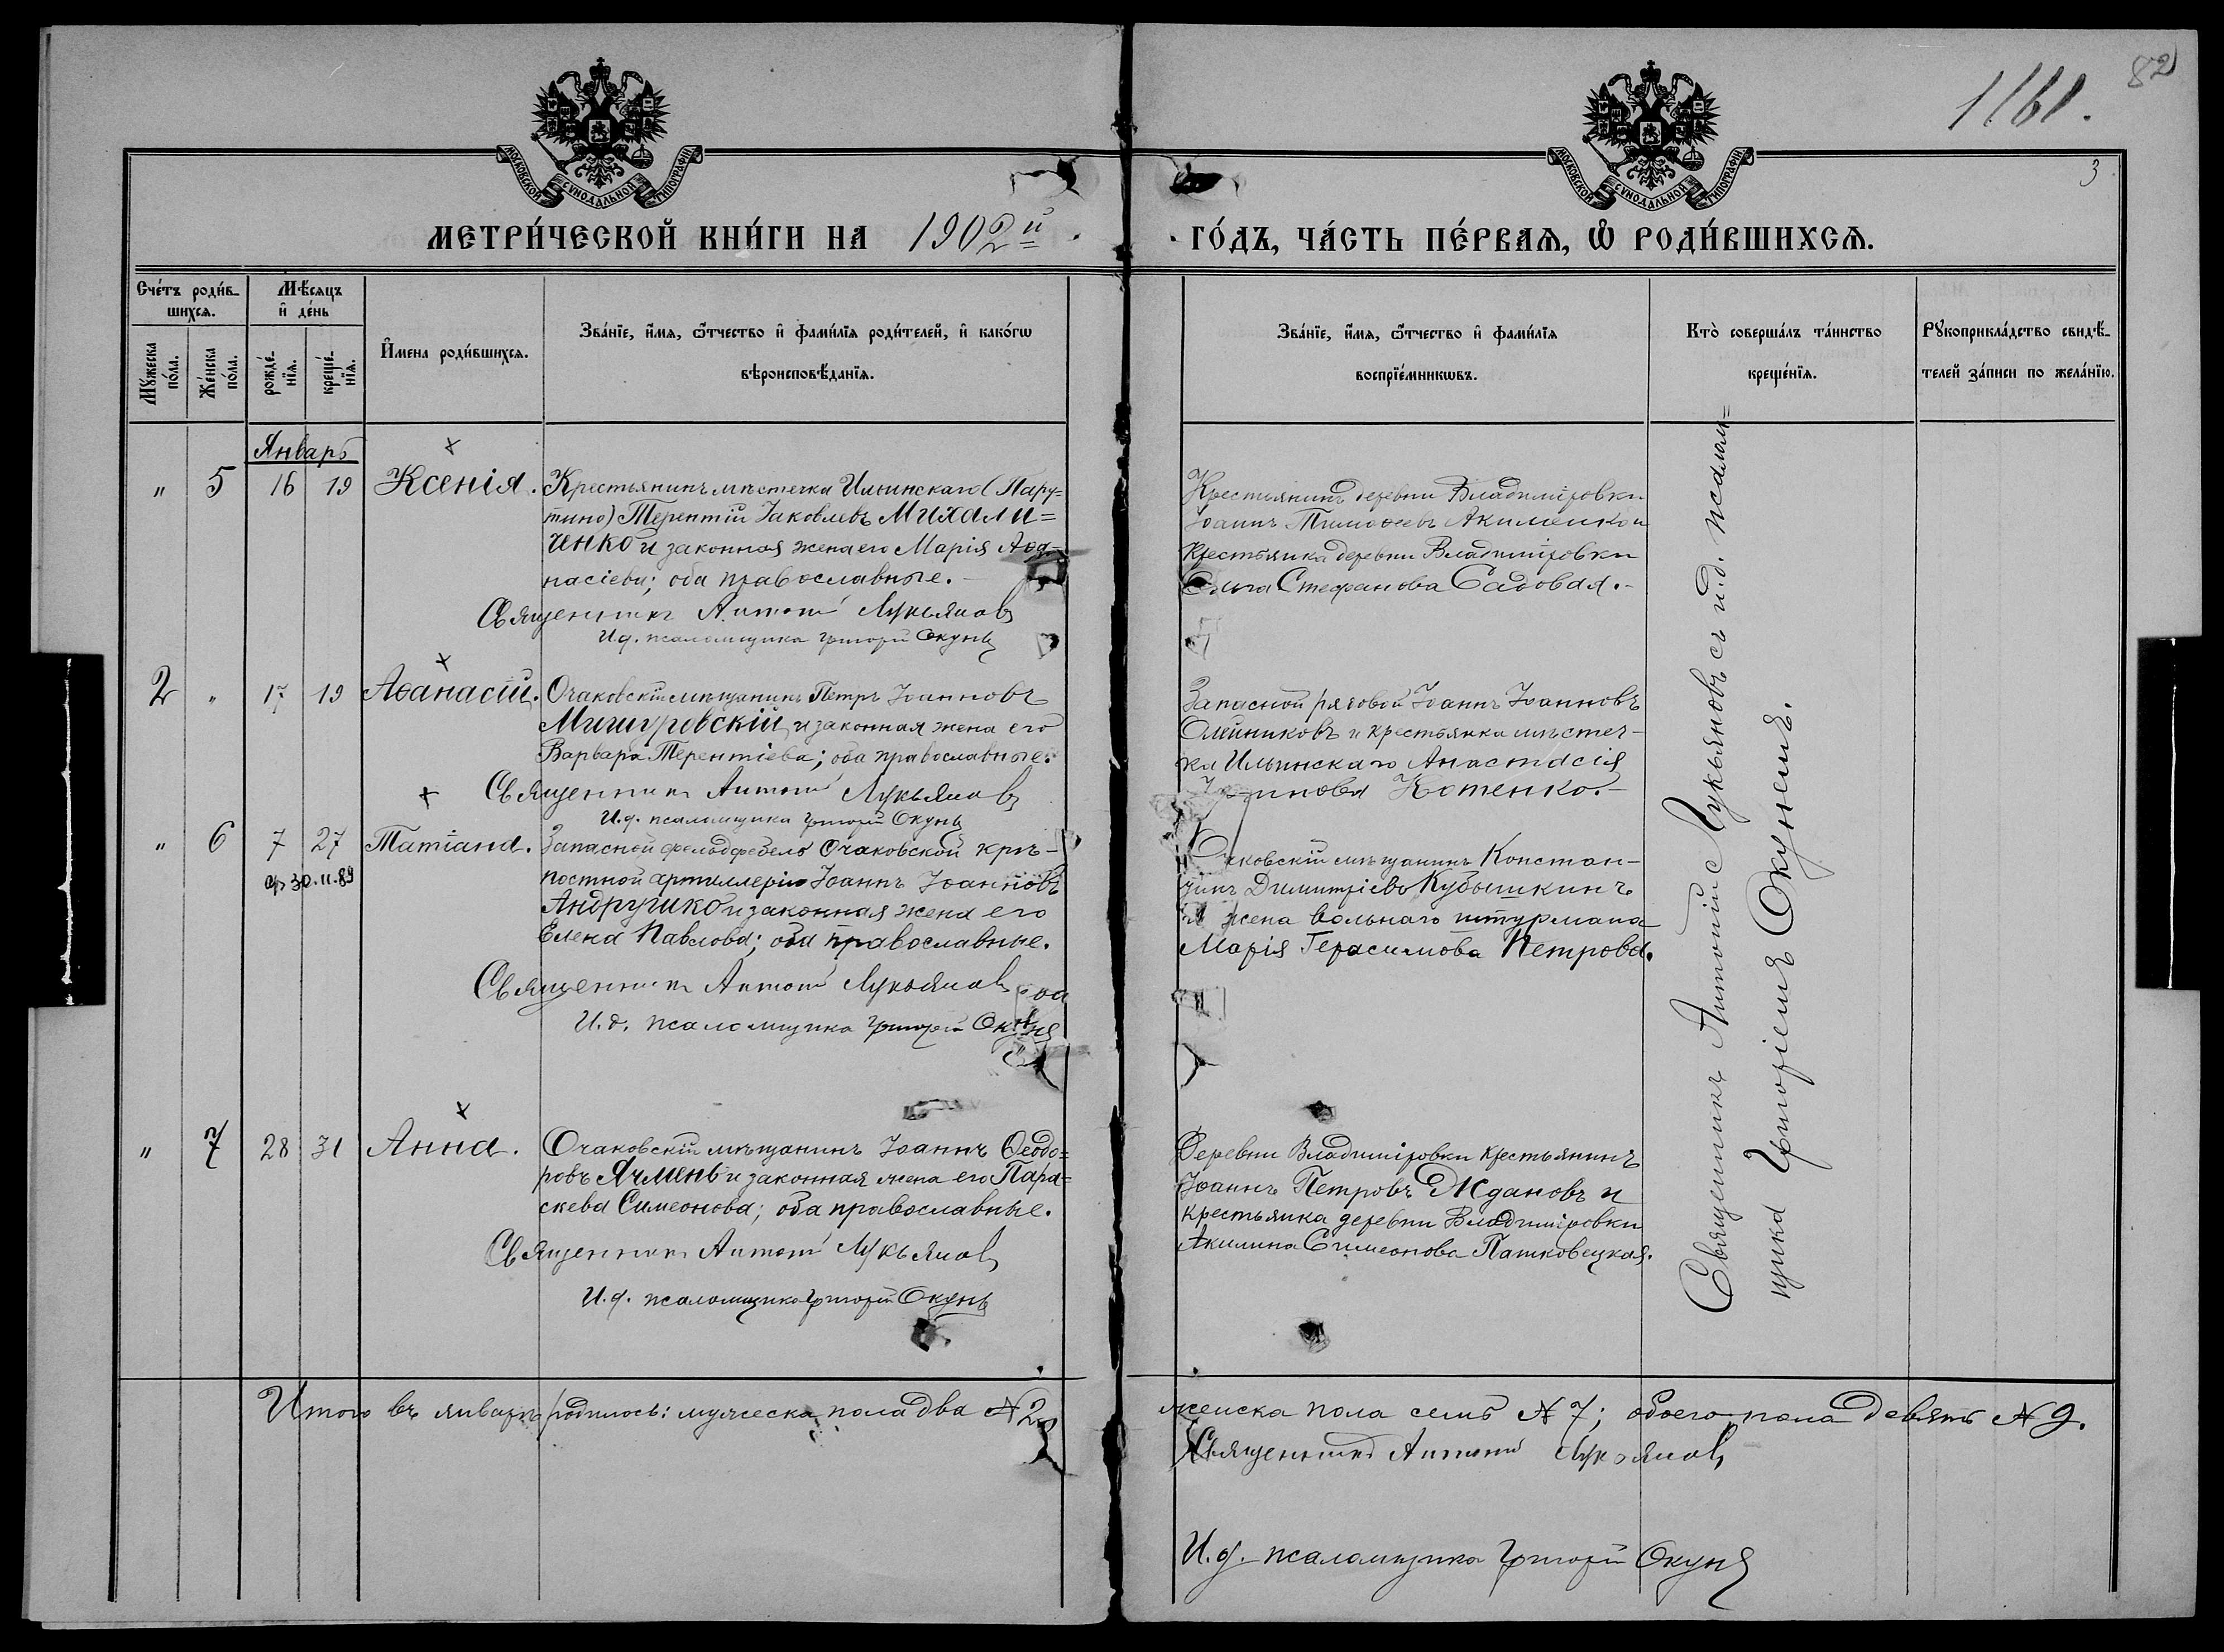 82
1161.
3
МОСКОВСКОЙ СѴНОДАЛЬНОЙ ТИПОГРАФІИ
МОСКОВСКОЙ СѴНОДАЛЬНОЙ ТИПОГРАФІИ
МЕТРИ́ЧЕСКОЙ КНИ́ГИ НА 1902й.
ГО́ДЪ, ЧА́СТЬ ПЕ́РВАѦ, Ѡ҆ РОДИ́ВШИХСѦ.
Сче́тъ роди́в-
шихсѧ.
Мꙋ́жеска по́ла.
Же́нска по́ла.
Мѣ́сѧцъ
и҆ де́нь
рожде́-нїѧ.
креще́-нїѧ.
И҆мена роди́вшихсѧ.
Зва́нїе, и҆́мѧ, ѻ҆́тчество и҆ фами́лїѧ роди́телей, и҆ како́гѡ
вѣроисповѣ́данїѧ.
Зва́нїе, и҆́мѧ, ѻ҆́тчество и҆ фами́лїѧ
воспрїе́мникѡвъ.
Кто̀ соверша́лъ та́инство
креще́нїѧ.
Рꙋкоприкла́дство свидѣ́-
телей за́писи по жела́нїю.
Январь
" 5 16 19 Ксенія. Крестьянинъ мѣстечка Ильинскаго (Пару=
тино) Терентій Іаковлевъ Михали=
ченко и законная жена его Марія Аѳа-
насіева; оба православные.-
Священникъ Антоній Лукьяновъ
И.д. псаломщика Григорій Окунь
Крестьянинъ деревни Владиміровки
Іоаннъ Тимоѳеевъ Акименко и
крестьянка деревни Владиміровки
Ольга Стефанова Садовая.-
2 " 17 19 Аѳанасій. Очаковскій мѣщанинъ Петръ Іоанновъ
Мишуровскій и законная жена его
Варвара Терентіева; оба православные.
Священникъ Антоній Лукьяновъ
И.д. псаломщика Григорій Окунь
Запасной рядовой Іоаннъ Іоанновъ
Олейниковъ и крестьянка мѣстеч-
ка Ильинскаго Анастасія
Котенко.-
" 6 7 27 Татіана. Запасной фельдфебель Очаковской крѣ-
30.11.89
постной артиллеріи Іоаннъ Іоанновъ
Андрушко и законная жена его
Елена Павлова; оба православные.
Священникъ Антоній Лукьяновъ
И.д. псаломщика Григорій Окунь
Очаковскій мѣщанинъ Констан-
тинъ Димитріевъ Кубышкинъ
и жена вольнаго штурмана
Марія Герасимова Петрова.
" 7 28 31 Анна. Очаковскій мѣщанинъ Іоаннъ Ѳеодо=
ровъ Ячмень и законная жена его Пара=
скева Симеонова; оба православные.
Священникъ Антоній Лукьяновъ
И.д. псаломщика Григорій Окунь
Деревни Владиміровки крестьянинъ
Іоаннъ Петровъ Ждановъ и
крестьянка деревни Владиміровки
Акилина Симеонова Пашковецкая.
Священникъ Антоній Лукьяновъ съ и.д. псалом=
щика Григоріемъ Окунемъ.
Итого въ январѣ родилось: мужеска пола два №2,
женска пола семь №7; обоего пола девять №9.
Священникъ Антоній Лукьяновъ
И.д. псаломщика Григорій Окунь